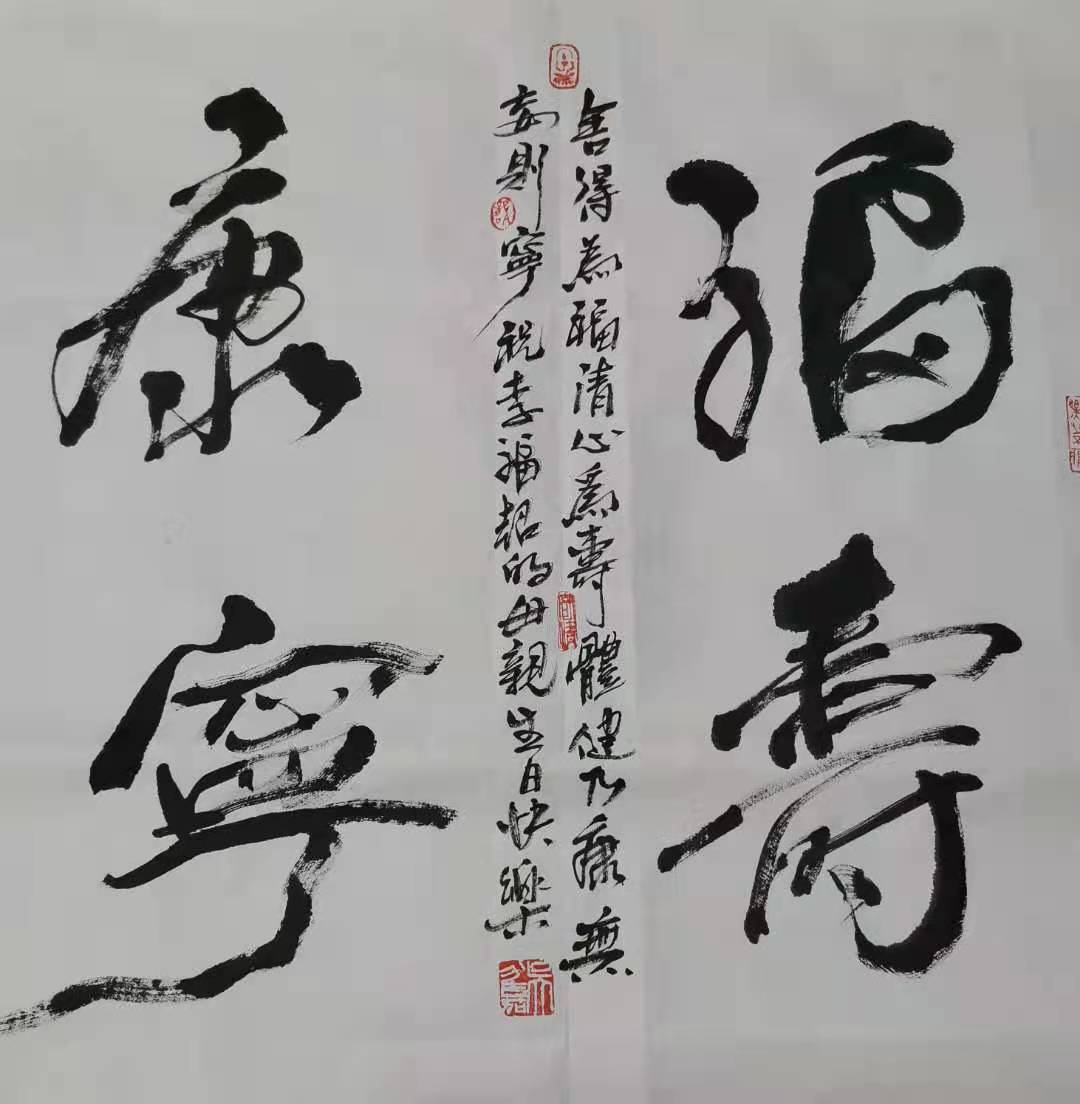 福壽
舍得為福清心為壽體健乃康無
妄則寧祝李福超的母親生日快樂
康寧